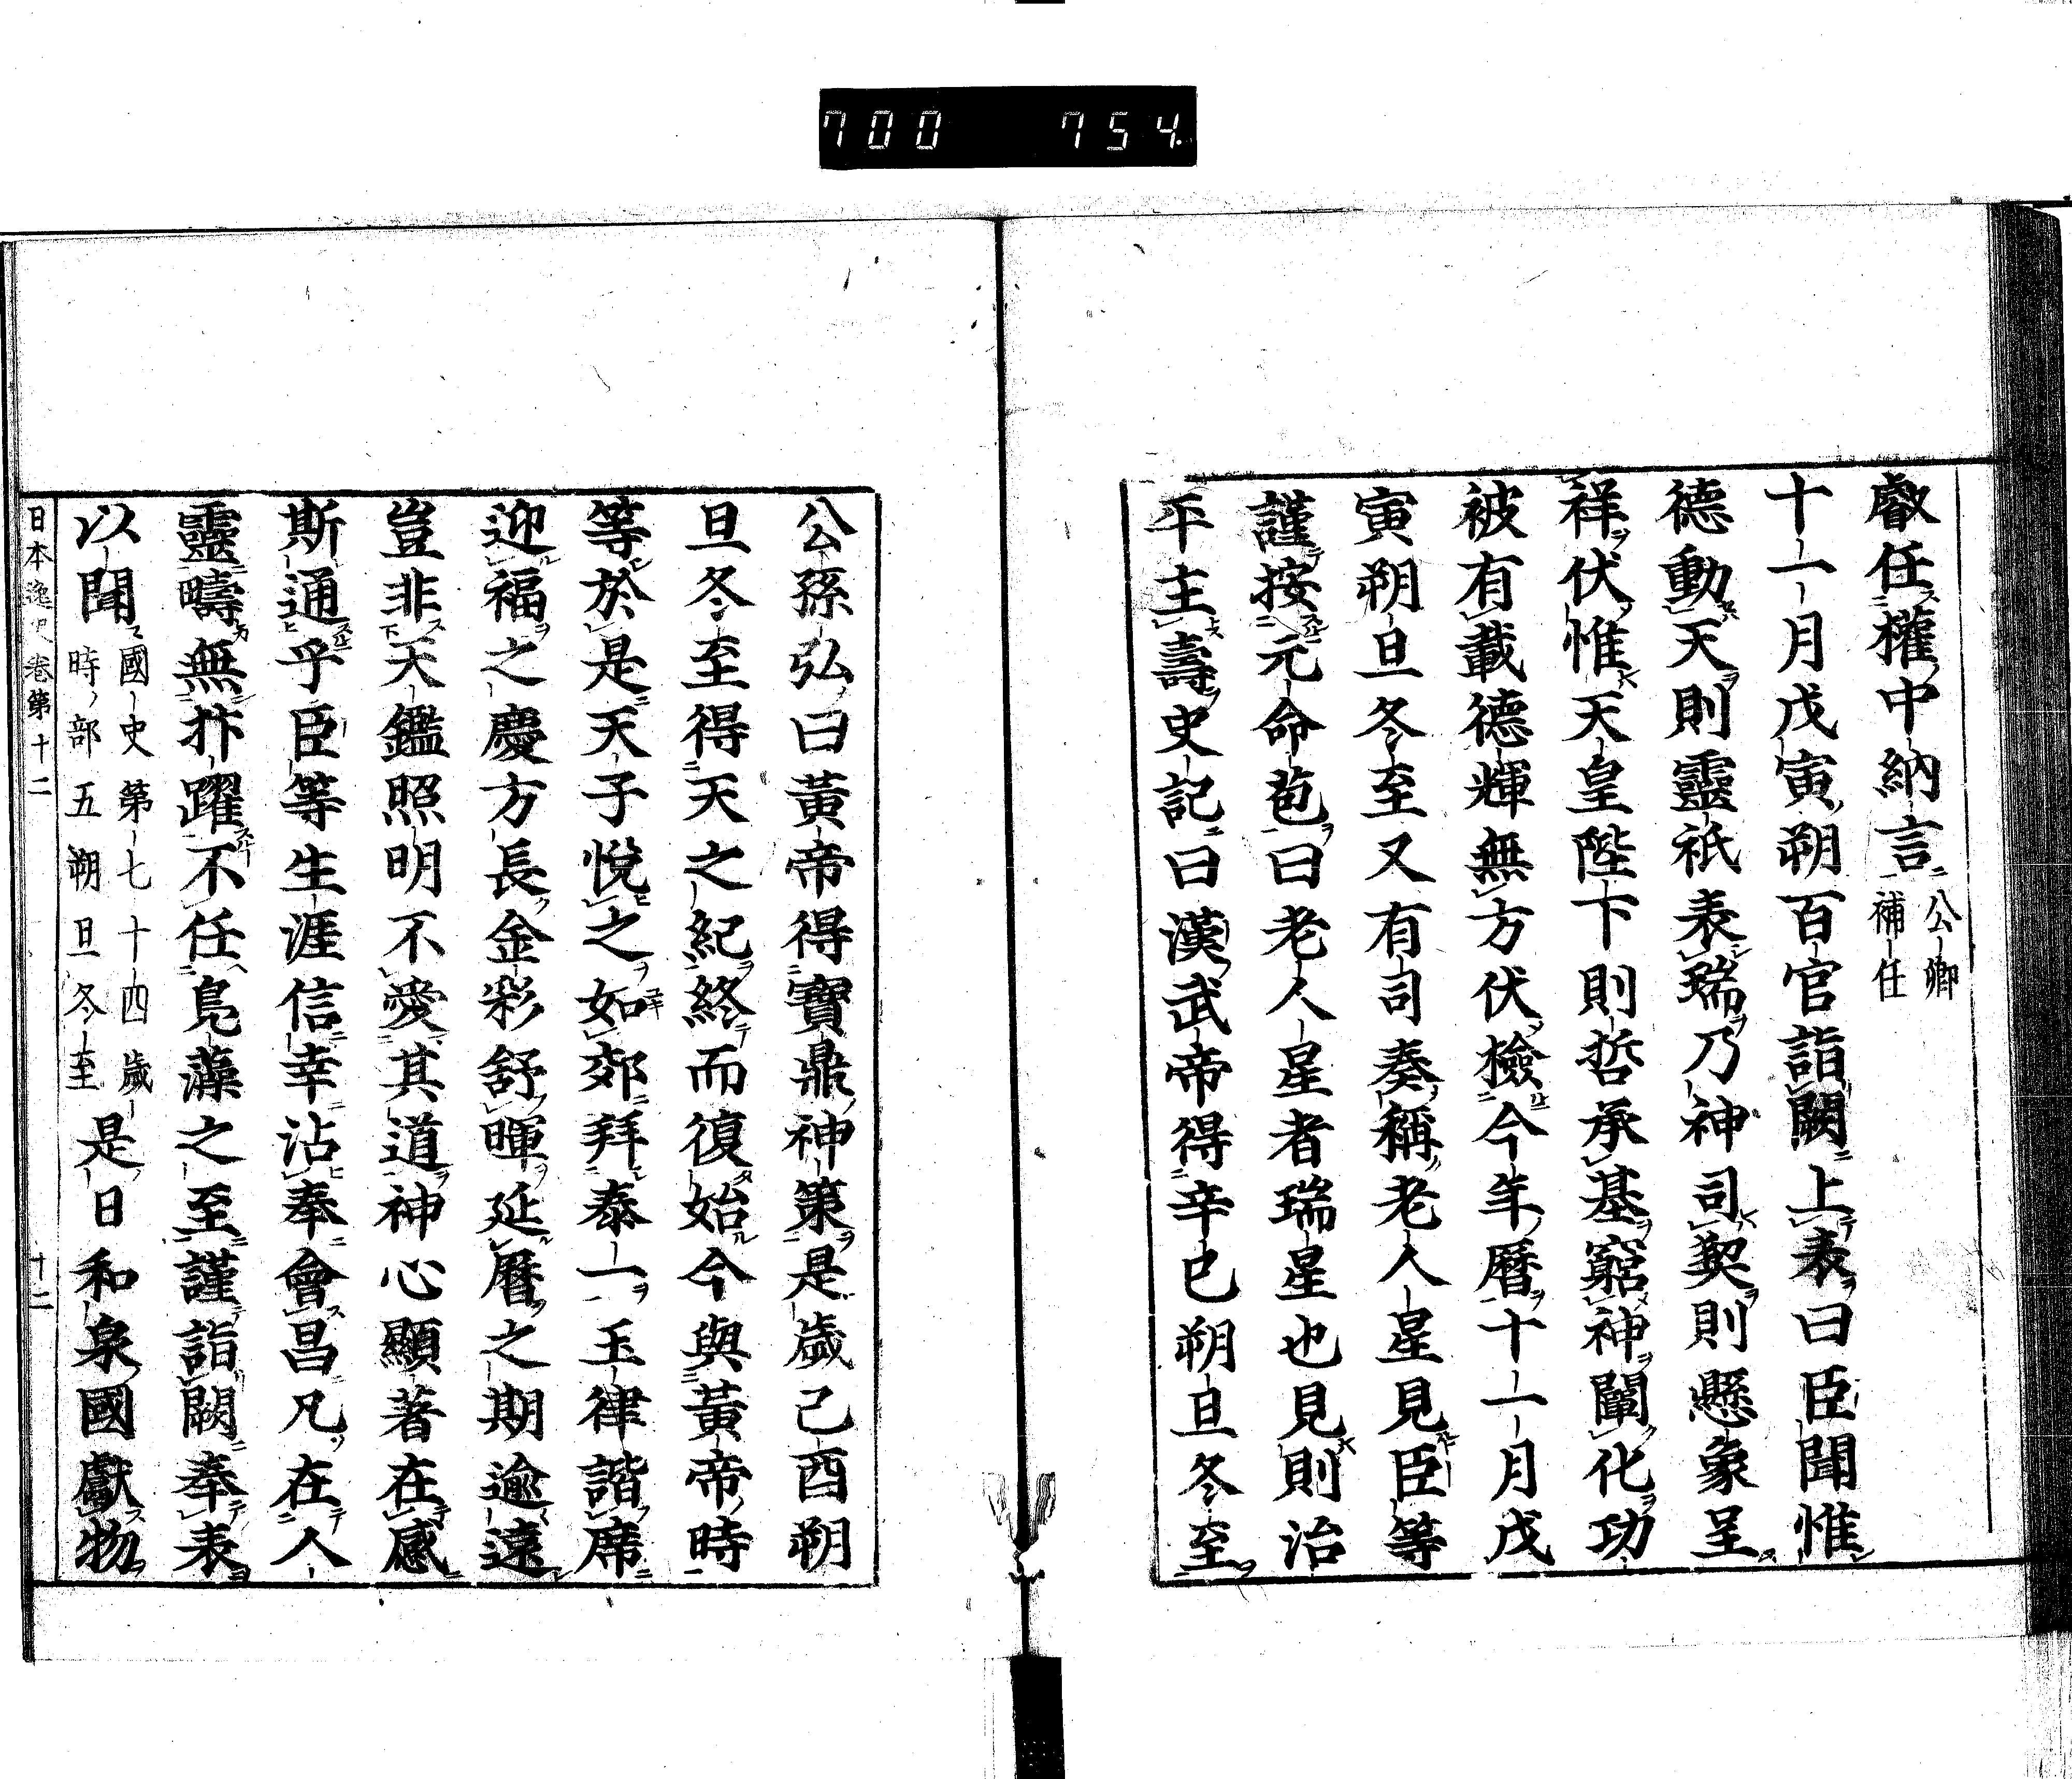 700 754.
叡任權中納言公卿補任
十一月戊寅朔百官詣闕上表曰臣聞惟
德動天則靈祇表瑞乃神司契則懸象呈
祥伏惟天皇陛下則哲承基窮神闡化功
被有載德輝無方伏檢今年曆十一月戊
寅朔旦冬至又有司奏稱老人星見臣等
謹按元命苞曰老人星者瑞星也見則治
平主壽史記曰漢武帝得辛巳朔旦冬至
公孫弘曰黃帝得寶鼎神策是歲己酉朔
旦冬至得天之紀終而復始今與黃帝時
等於是天子悅之如郊拜泰一玉律諧席
迎福之慶方長金彩舒暉延曆之期逾遠
豈非天鑑照明不愛其道神心顯著在感
斯通乎臣等生涯信幸沾奉會昌凡在人
靈疇無抃躍不任鳧藻之至謹詣闕奉表
以聞國史第七十四歲時部五朔旦冬至是日和泉國獻物
日本逸史卷第十二 十二